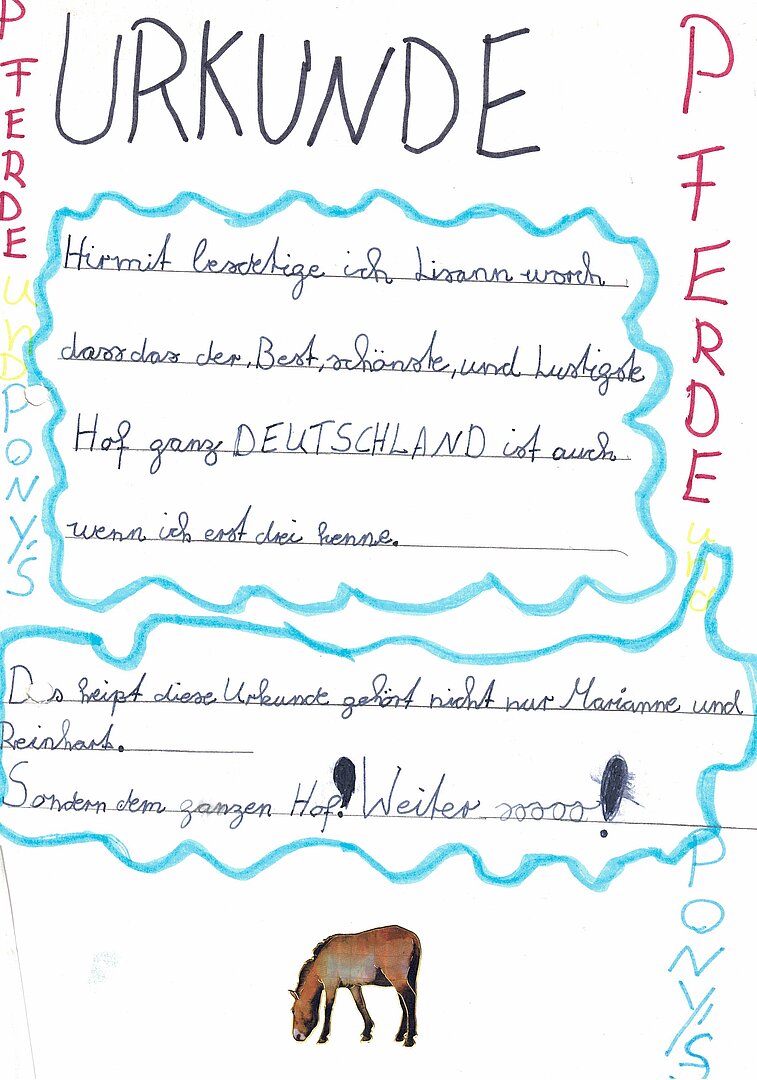 URKUNDE
PFERDE
und
PONY'S
Hirmit bestetige ich Lisann worch
dass das der, Best, schönste, und Lustigste
Hof ganz DEUTSCHLAND ist auch
wenn ich erst drei kenne.
Das heißt diese Urkunde gehört nicht nur Marianne und
Reinhart.
Sondern dem ganzen Hof! Weiter soooo!
PFERDE
und
PONY'S